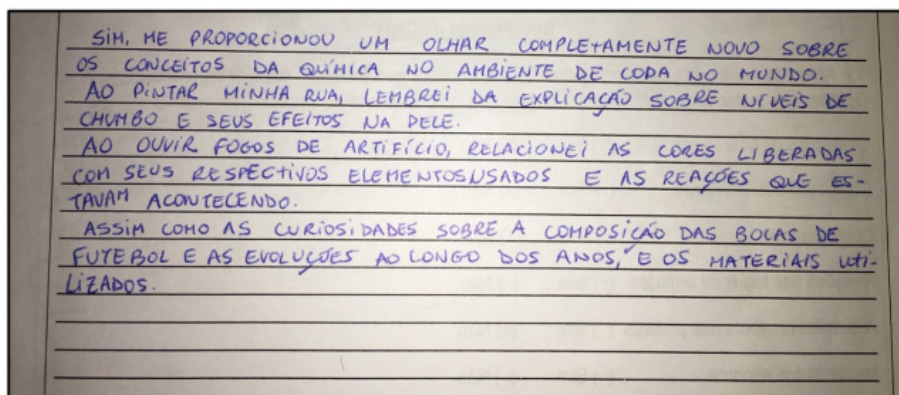 SIM, ME PROPORCIONOU UM OLHAR COMPLETAMENTE NOVO SOBRE
OS CONCEITOS DA QUÍMICA NO AMBIENTE DE COPA NO MUNDO.
AO PINTAR MINHA RUA, LEMBREI DA EXPLICAÇÃO SOBRE NÍVEIS DE
CHUMBO E SEUS EFEITOS NA PELE.
AO OUVIR FOGOS DE ARTIFÍCIO, RELACIONEI AS CORES LIBERADAS
COM SEUS RESPECTIVOS ELEMENTOS USADOS E AS REAÇÕES QUE ES-
TAVAM ACONTECENDO.
ASSIM COMO AS CURIOSIDADES SOBRE A COMPOSIÇÃO DAS BOLAS DE
FUTEBOL E AS EVOLUÇÕES AO LONGO DOS ANOS, E OS MATERIAIS UTI-
LIZADOS.